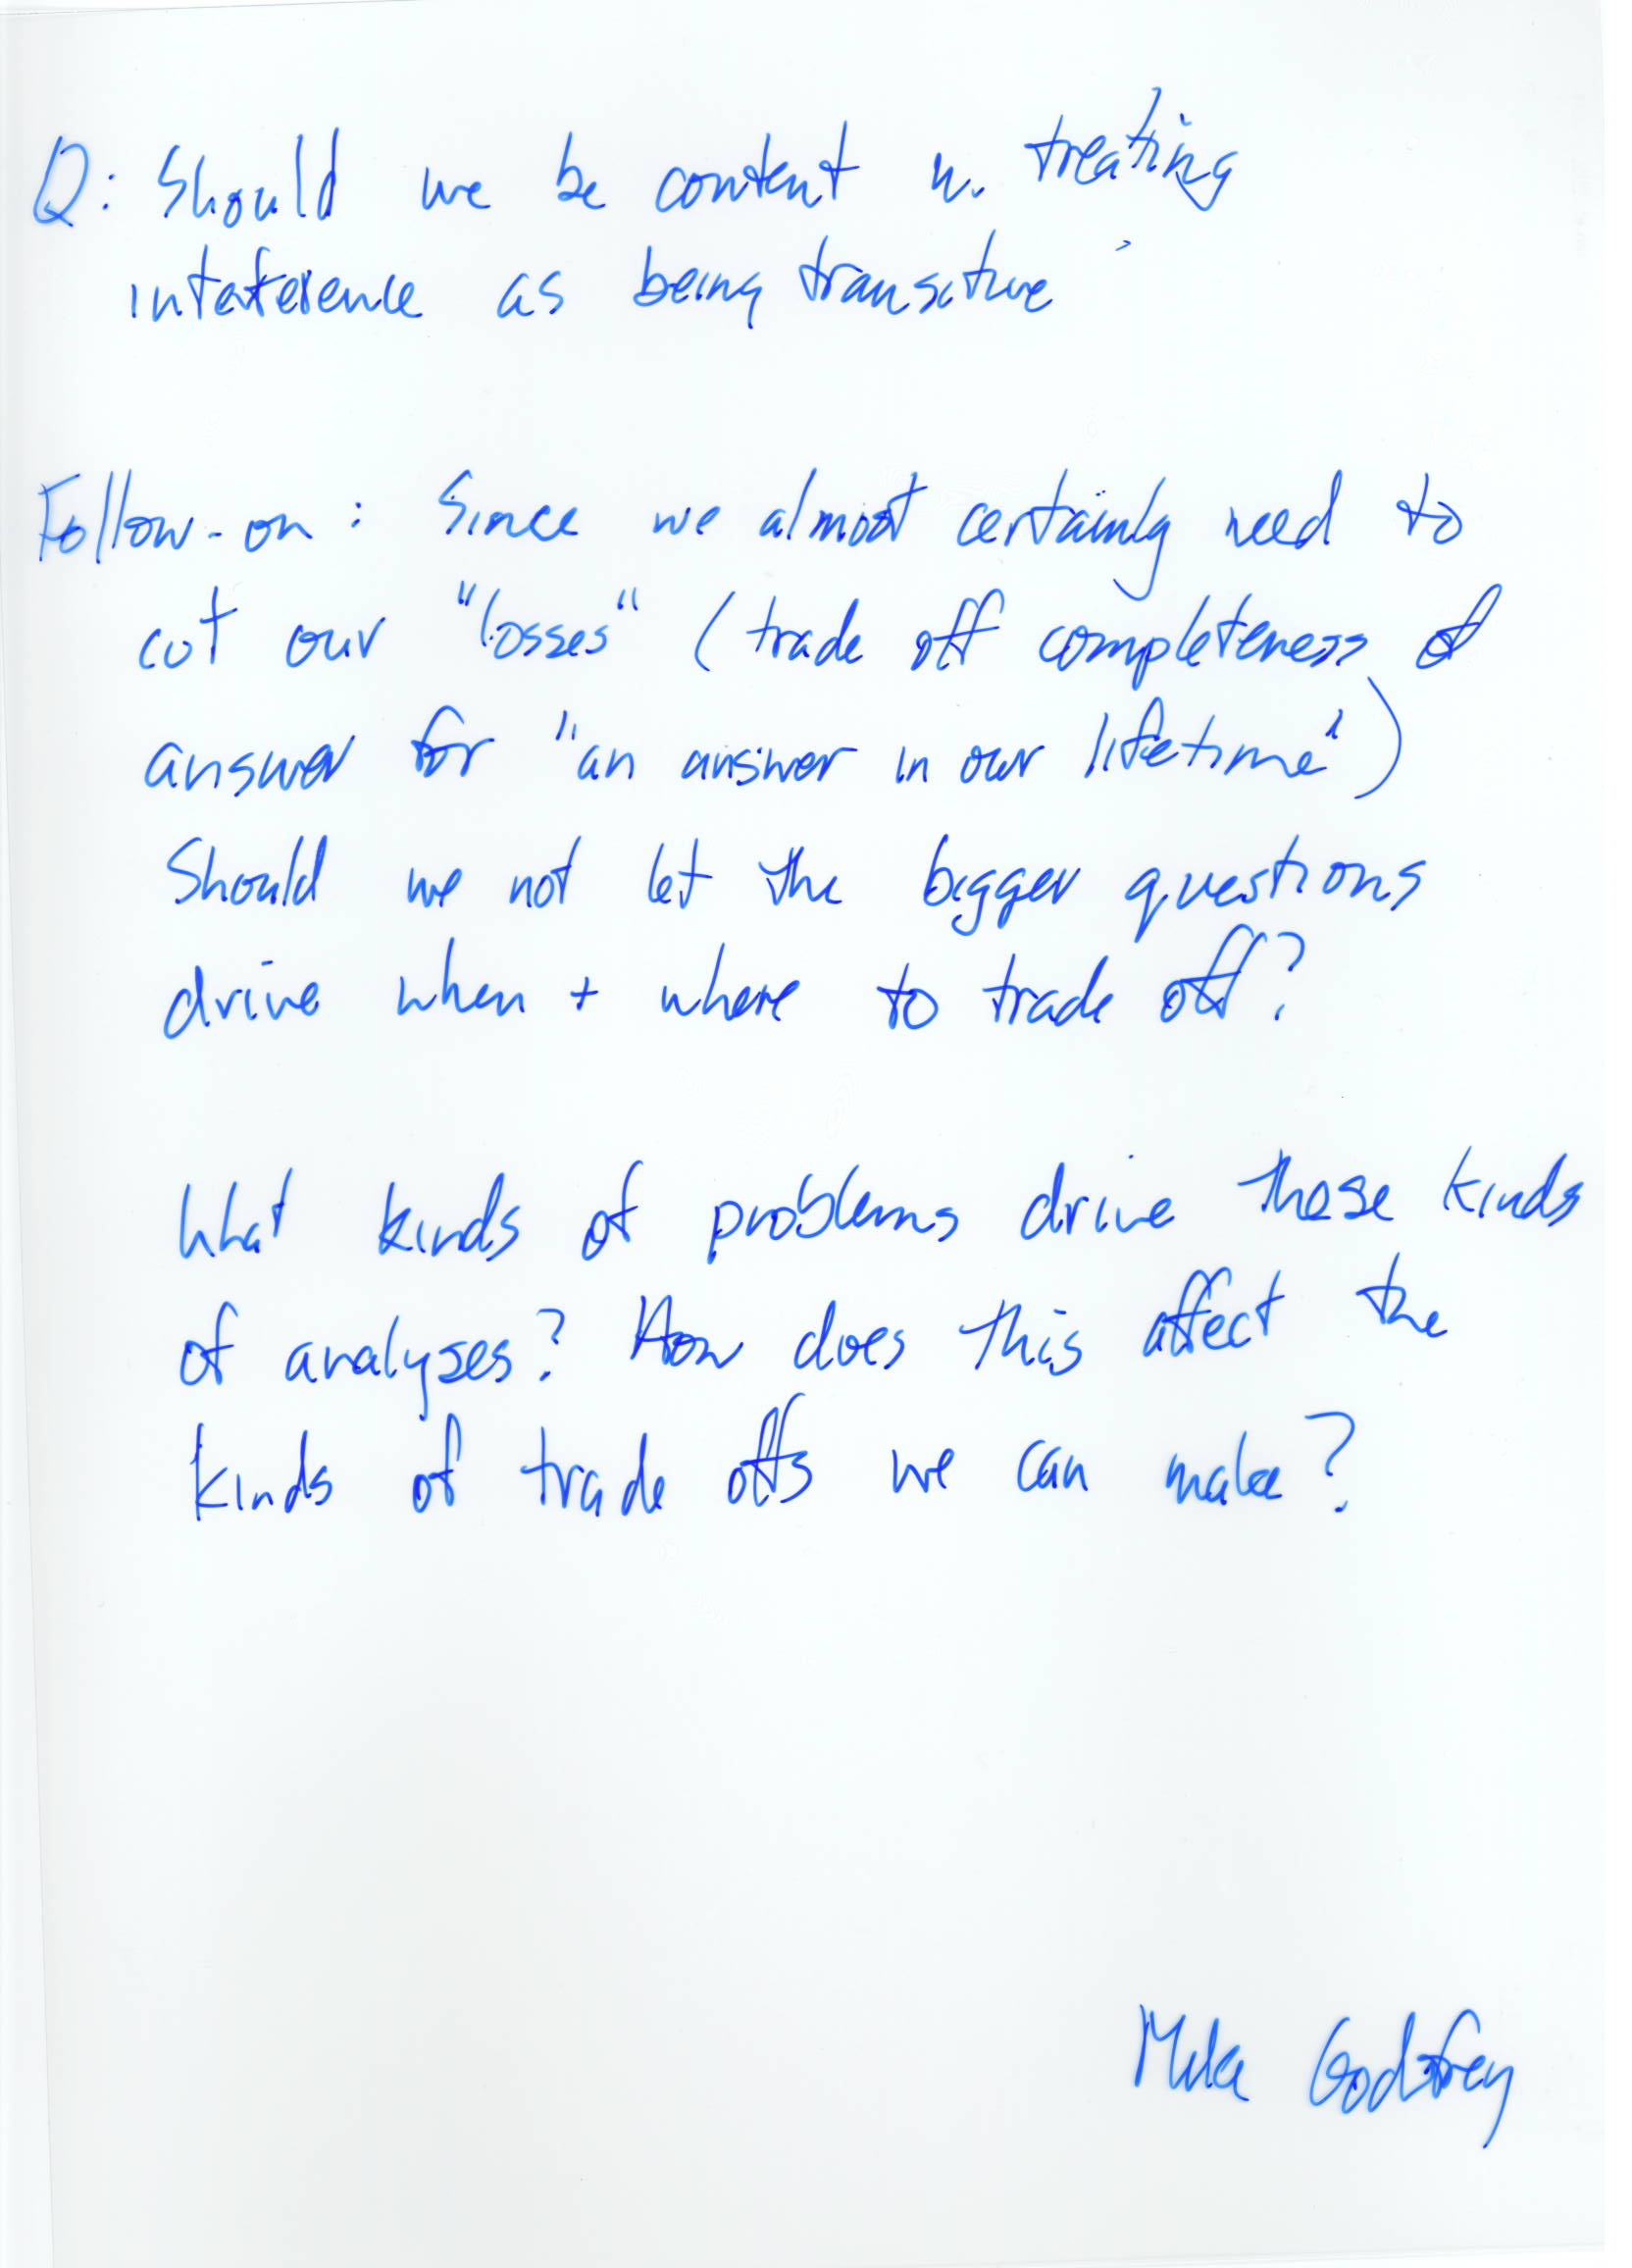 Q: Should we be content w. treating
interference as being transitive
Follow-on: Since we almost certainly need to
cut our "losses" (trade off completeness of
answer for "an answer in our lifetime")
Should we not let the bigger questions
drive when + where to trade off?
What kinds of problems drive these kinds
of analyses? How does this affect the
kinds of trade offs we can make?
Mike Godfrey